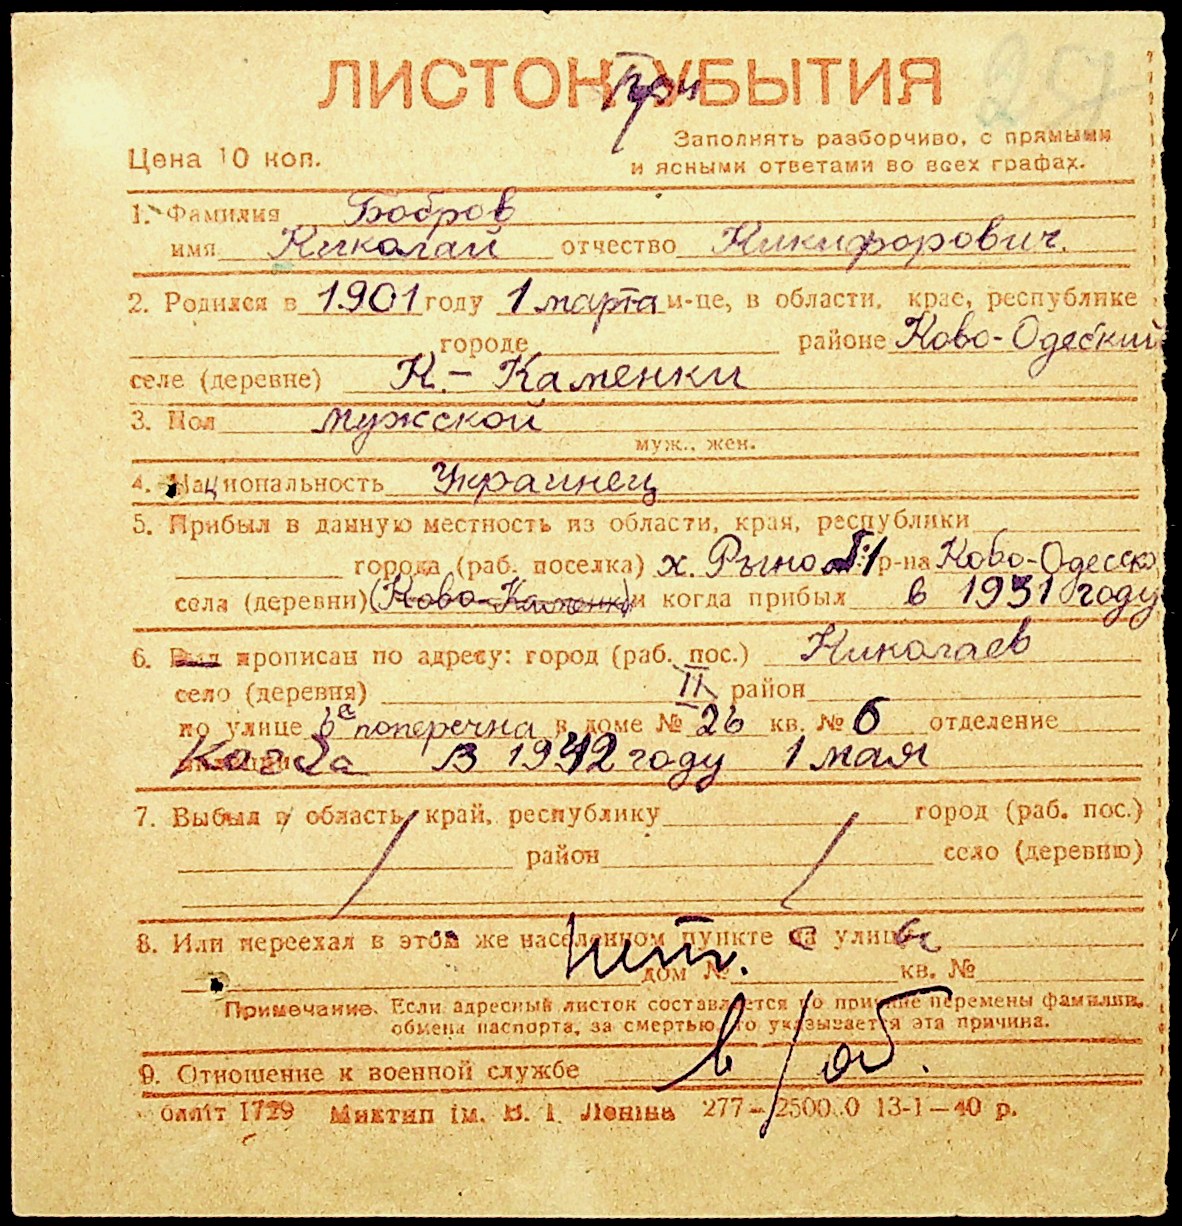 ЛИСТОК УБЫТИЯ
Цена 10 коп.
Заполнять разборчиво, с прямыми
и ясными ответами во всех графах.
1. Фамилия Бобров
имя Николай отчество Никифорович.
2. Родился в 1901 году 1 марта м-це, в области, крае, республике
городе районе Ново-Одеский
селе (деревне) Н.-Каменки
3. Пол мужской
муж., жен.
4. Национальность Украинец
5. Прибыл в данную местность из области, края, республики
города (раб. поселка) х. р-на Ново-Одесско
села (деревни) (Ново-Каменк) и когда прибыл в 1931 году
6. Был прописан по адресу: город (раб. пос.) Николаев
село (деревня) II район
по улице 6а поперечна в доме № 26 кв. № 6 отделение
Когда в 1942 году 1 мая
7. Выбыл в область, край, республику город (раб. пос.)
район село (деревню)
8. Или переехал в этом же населенном пункте на улицу
дом № кв. №
Примечание. Если адресный листок составляется по причине перемены фамилии,
обмена паспорта, за смертью, то указывается эта причина.
9. Отношение к военной службе в/об.
1729 Миктип ім. В. І. Леніна 277—2500.0 13-1—40 р.